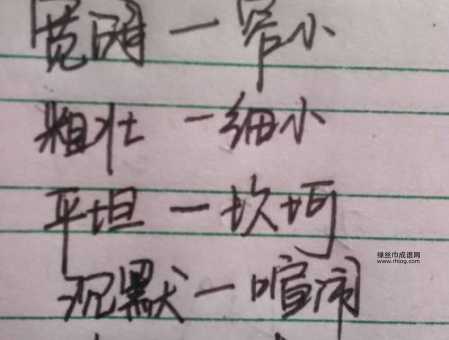 宽阔一窄小
粗壮一细小
平坦一坎坷
沉默一喧闹
绿丝巾成语网
www.rhlog.com